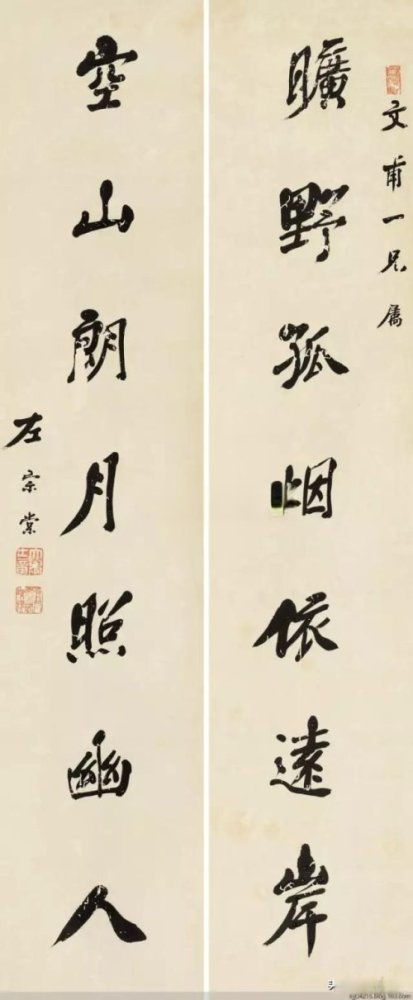 文甫一兄属
曠野孤烟依遠岸
空山朗月照幽人
左宗棠